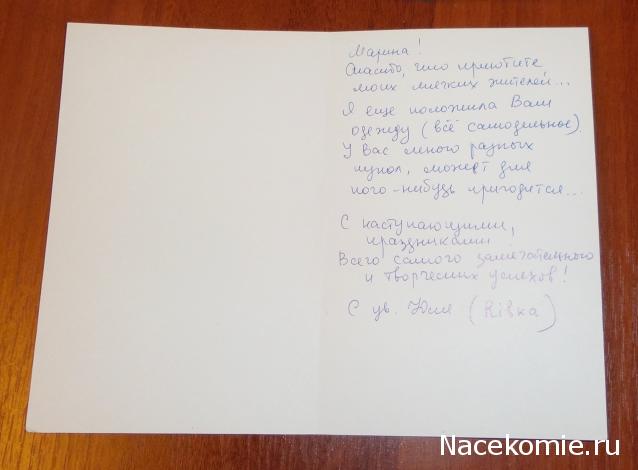 Марина!
Спасибо, что приютите
моих мягких жителей...
Я еще положила Вам
одежду (всё самодельное).
У Вас много разных
кукол, может для
кого-нибудь пригодится...
С наступающими,
праздниками
Всего самого замечательного
и творческих успехов!
С ув. Юля (Rivка)
Nacekomie.ru